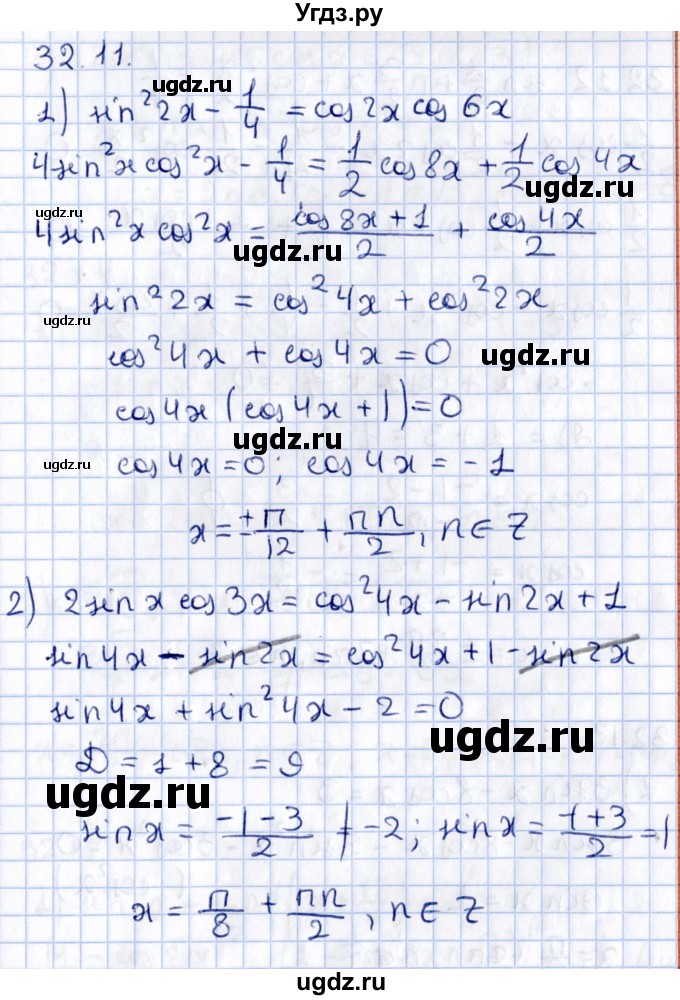 Угдз.ру
32.11.
ugdz.ru
1) sin²2x - 1/4 = cos2x cos6x
4sin²x cos²x - 1/4 = 1/2 cos8x + 1/2 cos4x
ugdz.ru
ugdz.ru
4sin²x cos²x = cos8x+1/2 + cos4x/2
ugdz.ru
sin²2x = cos²4x + cos²2x
ugdz.ru
cos²4x + cos4x = 0 ugdz.ru
cos4x(cos4x+1)=0
ugdz.ru
ugdz.ru
cos4x=0; cos4x = -1
x = ±π/12 + πn/2, n∈Z
ugdz.ru
2) 2sinx cos3x = cos²4x - sin2x + 1
sin4x - sin2x = cos²4x + 1 - sin2x
sin4x + sin²4x - 2 = 0
ugdz.ru
Д = 1 + 8 = 9
ugdz.ru
sinx = -1-3/2 ≠ -2; sinx = -1+3/2 = 1
x = π/8 + πn/2, n∈Z
ugdz.ru
ugdz.ru